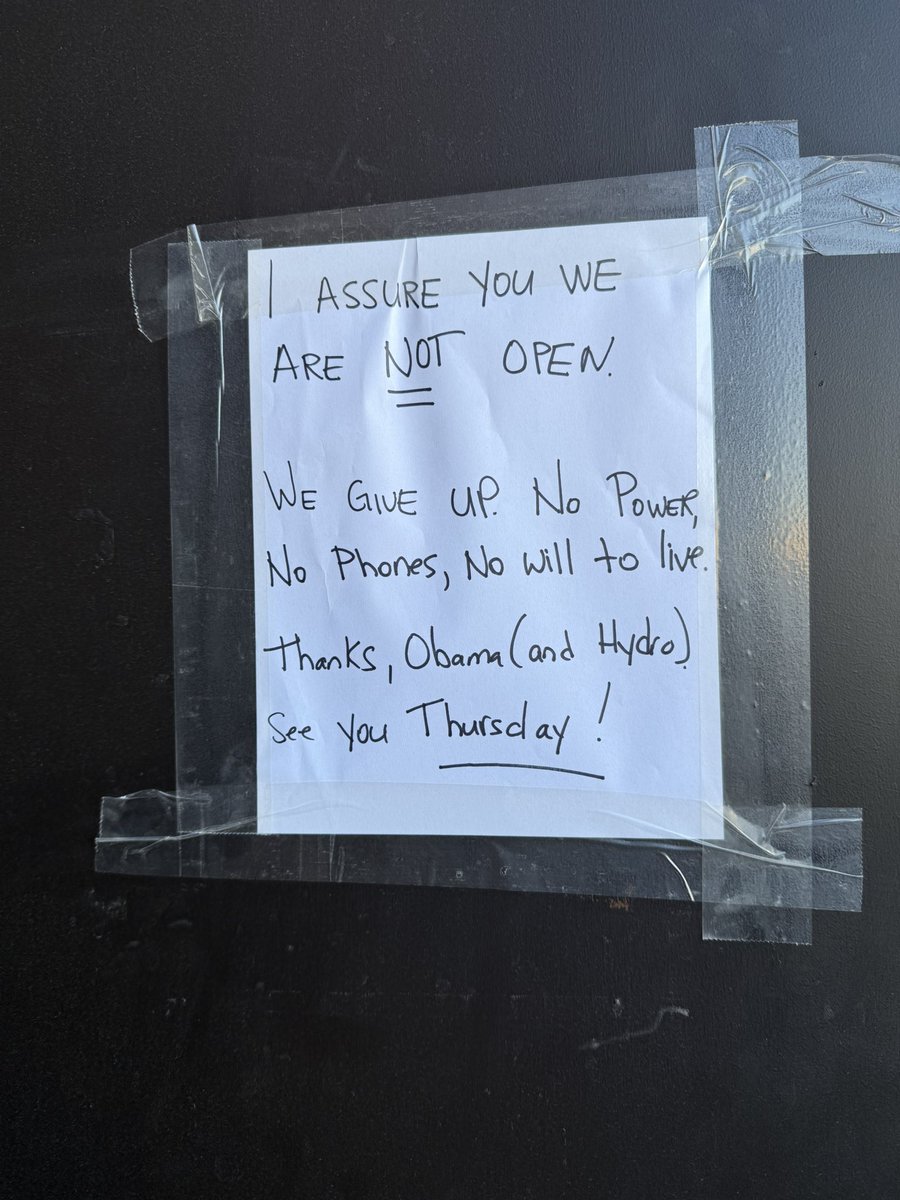 I ASSURE YOU WE
ARE NOT OPEN.
WE GIVE UP. NO POWER,
No Phones, No will to live.
Thanks, Obama (and Hydro).
See you Thursday!